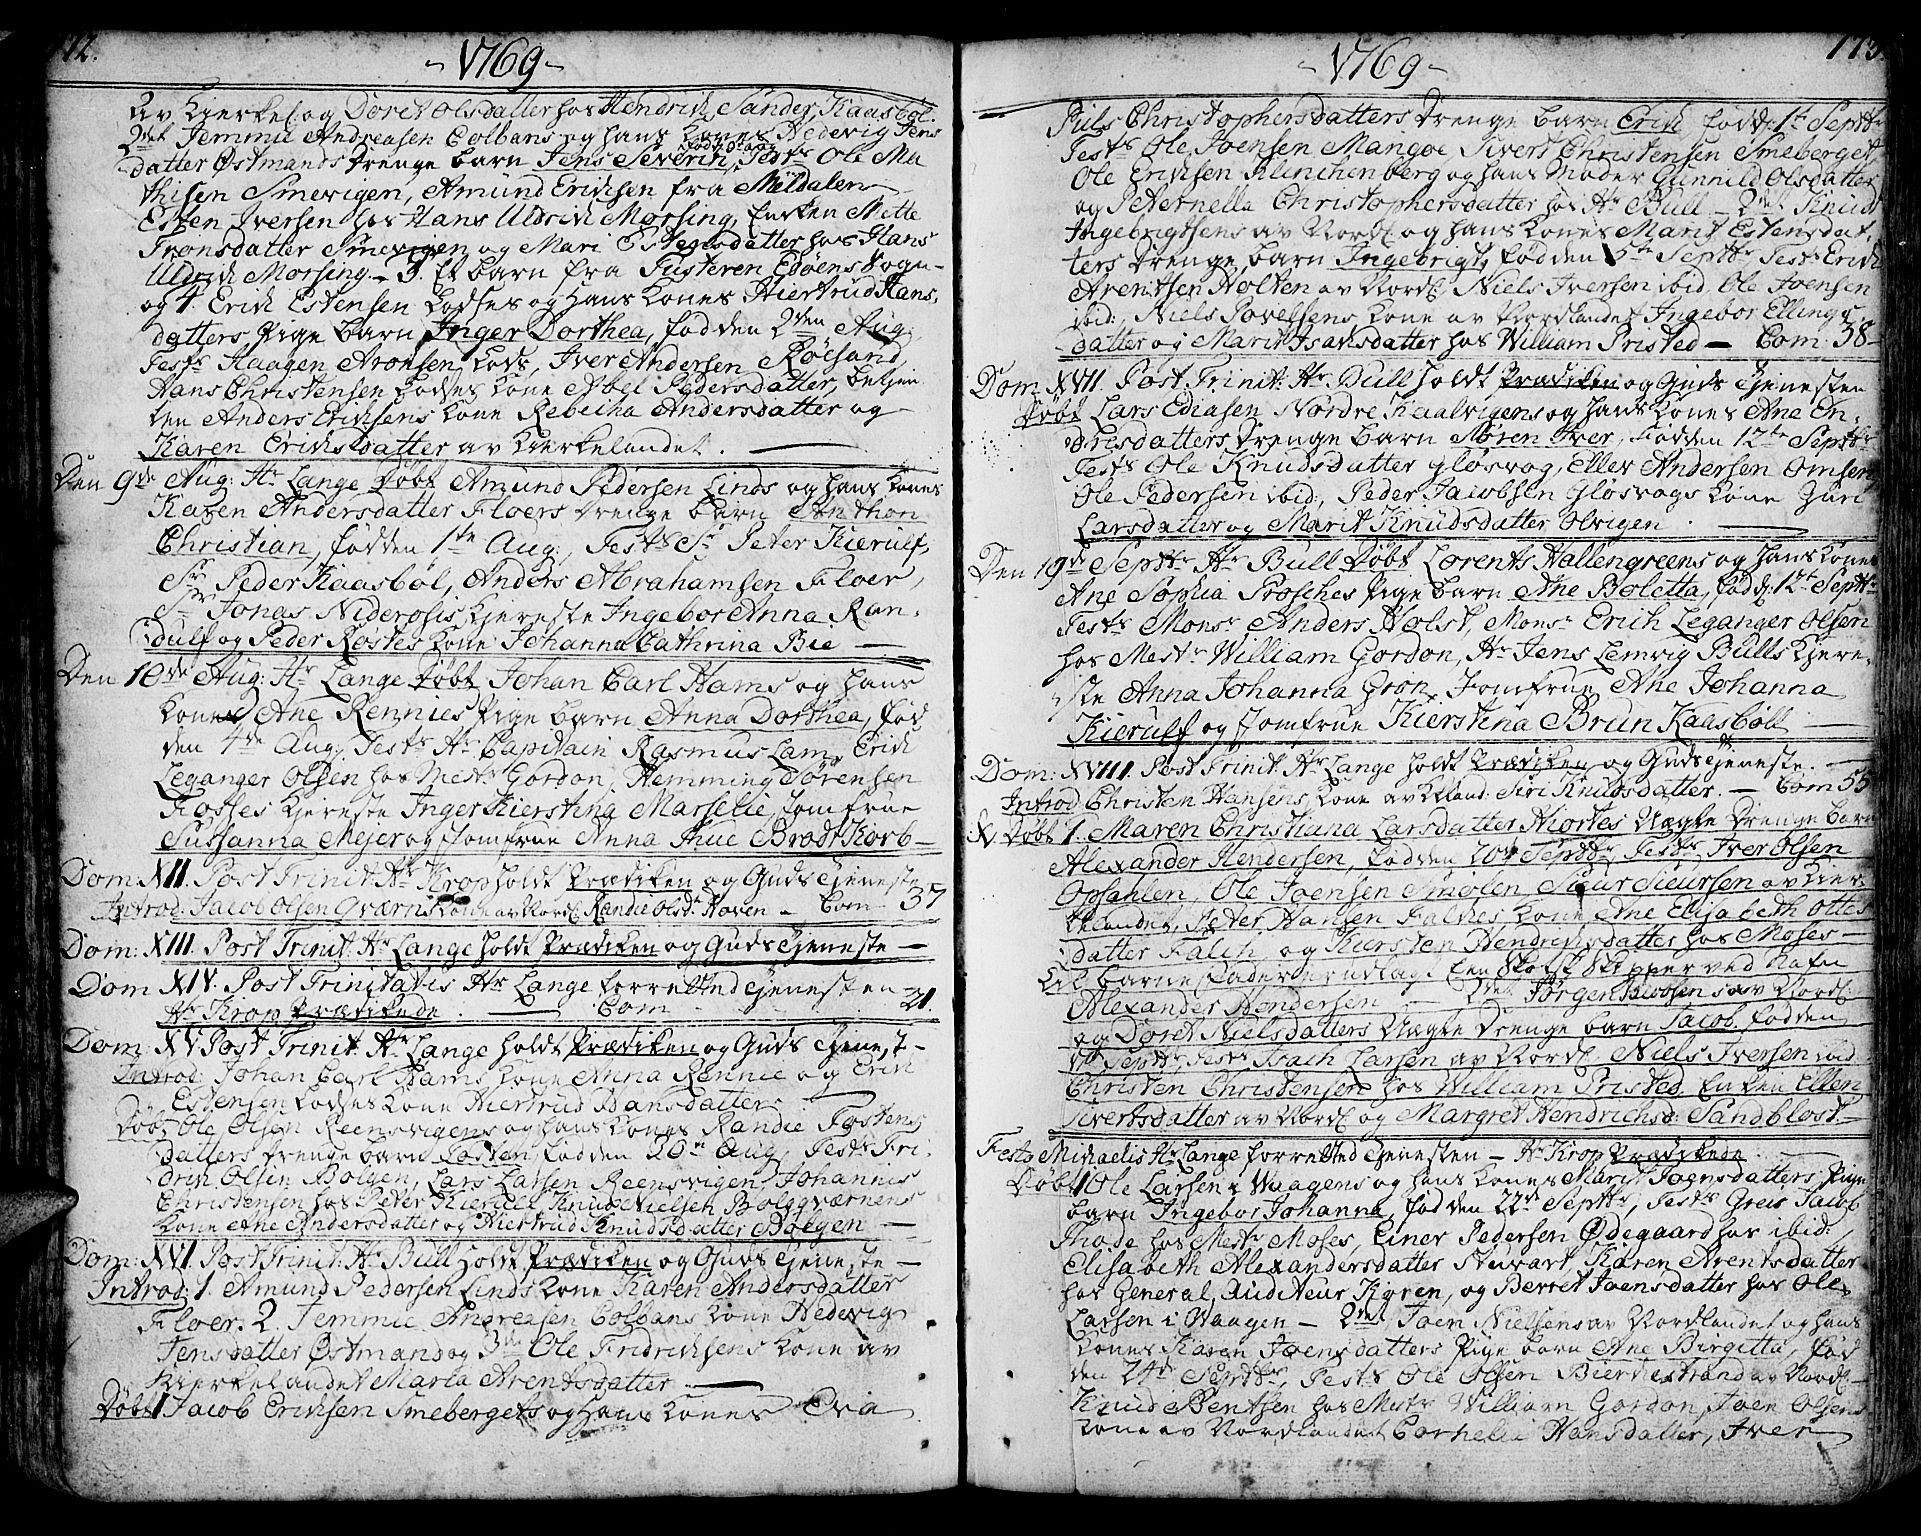 172.
- 1769 -
av Kierkel og Doret Olsdatter hos Hendrich Sander Kaasbøl.
2det Jemmie Andreasen Colbans og hans Kones Hedevig Jens
datter Østmands Drenge barn Jens Severin, Test: Ole Ma
thisen Smevigen, Amund Erichsen fra Meldalen
Esten Iversen hos Hans Uldrich Morsing, Enken Mette
Tronsdatter Smevigen og Mari Estensdatter hos Hans
Uldrich Morsing - 3. Et barn fra Tusteren Edøens Sogn -
og 4. Erich Estensen Lodses og Hans Kones Hiertrud Hans
datters, Pige barn Inger Dorthea, fød den 2den Aug:
Test: Haagen Aronsen Lods, Iver Andersen Røesand,
Hans Christensen Lodses Kone Abel Pedersdatter, betjen
ten Anders Erichsens Kone Rebecha Andersdatter og
Karen Erichsdatter av Kierkelandet.
Den 9de Aug: Hr Lange Døbt Amund Pedersen Linds og hans Kones
Karen Andersdatter Floers Drenge barn Anthon
Christian, fød den 1ste Aug:, Test: Sr Peter Kierulf,
Sr Peder Kaasbøl, Anders Abrahamsen Floer,
Sr Jonas Niderosis Kjereste Ingebor Anna Ran-
dulf og Peder Rostes Kone Johanna Cathrina Bie
Den 10de Aug: Hr Lange Døbt Johan Carl Hams og hans
Kones Ane Rennies Pige barn Anna Dorthea, fød
den 4de Aug, Test: Hr Capitain Rasmus Lam, Erich
Leganger Olsen hos Mestr Gordon, Hemming Sørensen
Fosses Kjereste Inger Kierstina Marselie Jomfrue
Sussanna Mejer og Jomfrue Anna Thue Brodtkorb
Dom: XII. Post Trinit: Hr Krop holdt Prædiken og Guds Tjeneste
Introd: Jacob Olsen Qværns Kone av Nordl: Randie Olsd: Hoven - Com 37
Dom: XIII. Post Trinit: Hr Lange holdt Prædiken og Guds Tjeneste
Dom XIV. Post Trinitatis Hr Lange forrettted Tjenesten -
Hr Krop Prædikede. Com 21.
Dom: XV Post Trinit: Hr Lange holdt Prædiken og Guds Tjenest
Introd: Johan Carl Hams Kone Anna Rennie og Erich
Estensen Lodses Kone Hiertrud Hansdatter
Døbt Ole Olsen Reensvigens og hans Kones Randie Tostens
datters Drenge barn Tosten, fød den 20de Aug, Test: Fri-
drin Olsen Bolgen, Lars Larsen Reensvigen, Johannis
Christensen hos Peter Kierulf Knud Nielsen Bolgqværnens
Kone Ane Andersdatter og Hiertrud Knudsdatter Bolgen
Dom: XVI. Post Trinit: Hr Bull holdt Prædiken og Guds Tjeneste -
Introd: 1. Amund Pedersen Linds Kone Karen Andersdatter
Floer. 2. Jemmie Andreasen Colbans Kone Hedevig
Jensdatter Østmand og 3de Ole Fridrichsens Kone av
Kierkelandet Marta Arentsdatter
Døbt 1 Jacob Erichsen Smebergets og hans Kones Eva
173.
- 1769 -
Piils Christophersdatters Drenge barn Erich fød 1te Septbr
Test: Ole Joensen Mangoe, Sivert Christensen Smeberget
Ole Erichsen Klinchenberg og hans Moder Gunnild Olsdatter
og Peternella Christophersdatter hos Hr Bull - 2det Knud
Ingebrigtsens av Nordl: og hans Kones Marit Estensdat
ters Drenge barn Ingebrigt, fød den 5te Septbr Test: Erich
Arentsen Holten av Nordl: Niels Iversen ibid. Ole Joensen
ibid:, Niels Povelsens Kone av Nordlandet Ingebor Ellings
datter og Marit Isaksdatter hos William Pristed - Com: 38
Dom XVII. Post Trinit: Hr Bull holdt Prædiken og Guds Tjenesten
Døbt Lars Ediasen Nordre Kaalvigens og hans Kones Ane En-
dresdatters Drenge barn Søren Iver, fød den 12te Septbr
Test: Ole Knudsdatter Gløsvog, Eller Andersen Omsen
Ole Pedersen ibid:, Peder Jacobsen Gløsvogs Kone Guri
Larsdatter og Marit Knudsdatter Olvigen.
Den 19de Septbr Hr Bull Døbt Lorents Hallengreens og hans Kones
Ane Sophia Brosches Pige barn Ane Boletta, fød 12te Septbr
Test: Monsr Anders Holst, Monsr Erich Leganger Olsen
hos Mestr William Gordon, Hr Jens Lemvig Bulls Kjere-
ste Anna Johanna Grøn, Jomfrue Ane Johanna
Kierulf og Jomfrue Kierstina Brun Kaasbøll
Dom: XVIII. Post Trinit: Hr Lange holdt Prædiken og Guds Tjeneste.
Introd Christen Hansens Kone av Kland: Siri Knudsdatter. - Com 55
Døbt 1. Maren Christiana Larsdatter Hiortes Uægte Drenge barn
Alexander Hendersen, fød den 20de Septbr, Test: Iver Olsen
Opsahlen, Ole Joensen Smølen, Siur Sieursen av Kier-
kelandet, Peter Hansen Falches Kone Ane Elisabeth Ottes
datter Falch, og Kiersten Hendrichsdatter hos Moses -
Lil. Barne Fader er udlagt En Skotsk Skipper ved Nafn
Alexander Hendersen - 2det Jørgen Jacobsens av Nordl:
og Doret Nielsdatters Uægte Drenge barn Jacob, fød den
Septbr, Test: Isach Larsen av Nordl: Niels Iversen ibid
Christen Christensen hos William Pristed Enken Ellen
Sivertsdatter av Nordl: og Margret Hendrichsd: Sandblost.
Festo Michaelis Hr Lange forretted Tjenesten - Hr Krop Prædikede.
Døbt 1 Ole Larsen i Vaagens og hans Kones Marit Joensdatters Pige
barn Ingebor Johanna, fød den 22de Septbr, Test: Greis Jacob
Thode hos Mestr Moses, Einer Pedersen Ødegaard hos ibid:
Elisabeth Alexandersdatter Stuvart, Karen Arentsdatter
hos General Auditeur Koren, og Berret Joensdatter hos Ole
Larsen i Vaagen - 2det Joen Nielsens av Nordlandet og hans
Kones Karen Joensdatters Pige barn Ane Birgitta, fød
den 24de Septbr, Test: Ole Olsen Bierkestrand av Nordl:
Knud Bentsen hos Mestr William Gordon, Joen Olsens
Kone av Nordlandet Cornelia Hansdatter, Iver